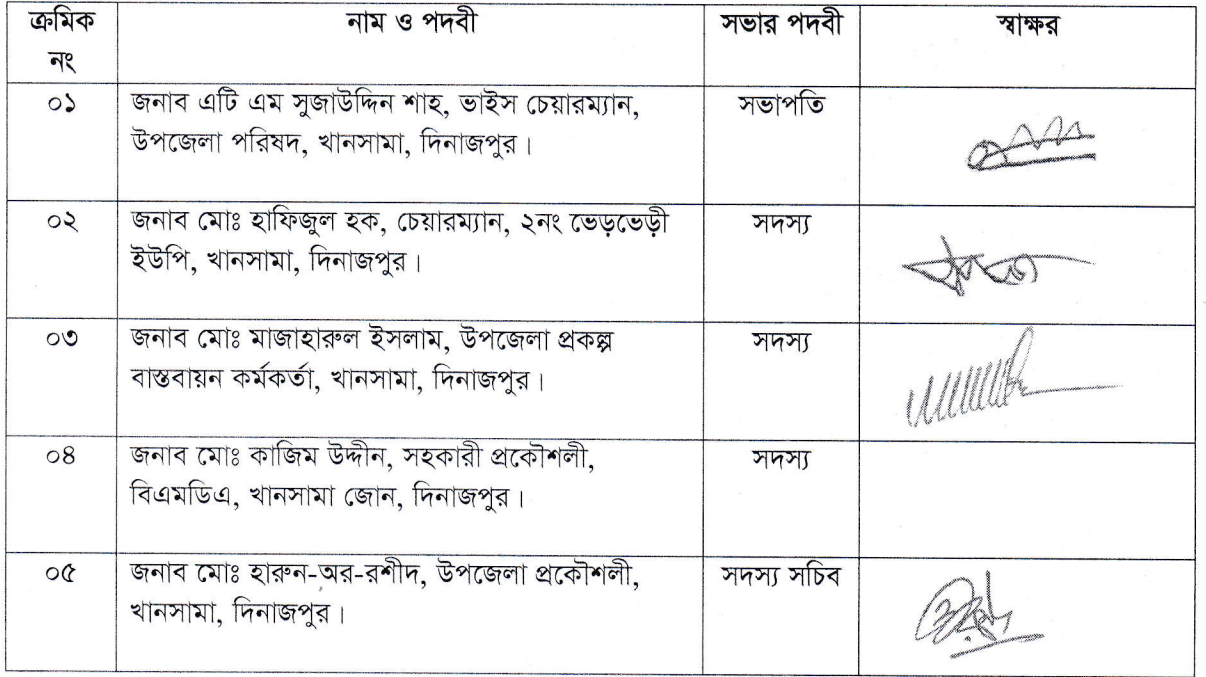 ক্রমিক নং নাম ও পদবী সভার পদবী স্বাক্ষর
০১ জনাব এটি এম সুজাউদ্দিন শাহ, ভাইস চেয়ারম্যান, সভাপতি
উপজেলা পরিষদ, খানসামা, দিনাজপুর।
০২ জনাব মোঃ হাফিজুল হক, চেয়ারম্যান, ২নং ভেড়ভেড়ী সদস্য
ইউপি, খানসামা, দিনাজপুর।
০৩ জনাব মোঃ মাজাহারুল ইসলাম, উপজেলা প্রকল্প সদস্য
বাস্তবায়ন কর্মকর্তা, খানসামা, দিনাজপুর।
০৪ জনাব মোঃ কাজিম উদ্দীন, সহকারী প্রকৌশলী, সদস্য
বিএমডিএ, খানসামা জোন, দিনাজপুর।
০৫ জনাব মোঃ হারুন-অর-রশীদ, উপজেলা প্রকৌশলী, সদস্য সচিব
খানসামা, দিনাজপুর।